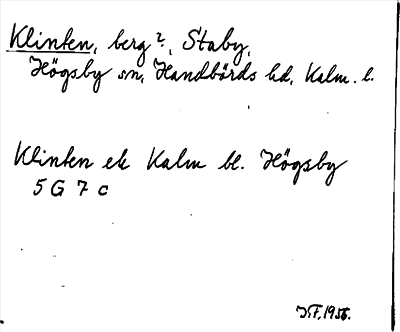 Klinten, berg?, Staby,
Högsby sn, Handbörds hd, Kalm. l.
Klinten ek Kalm bl. Högsby
5 G 7 c
1956.